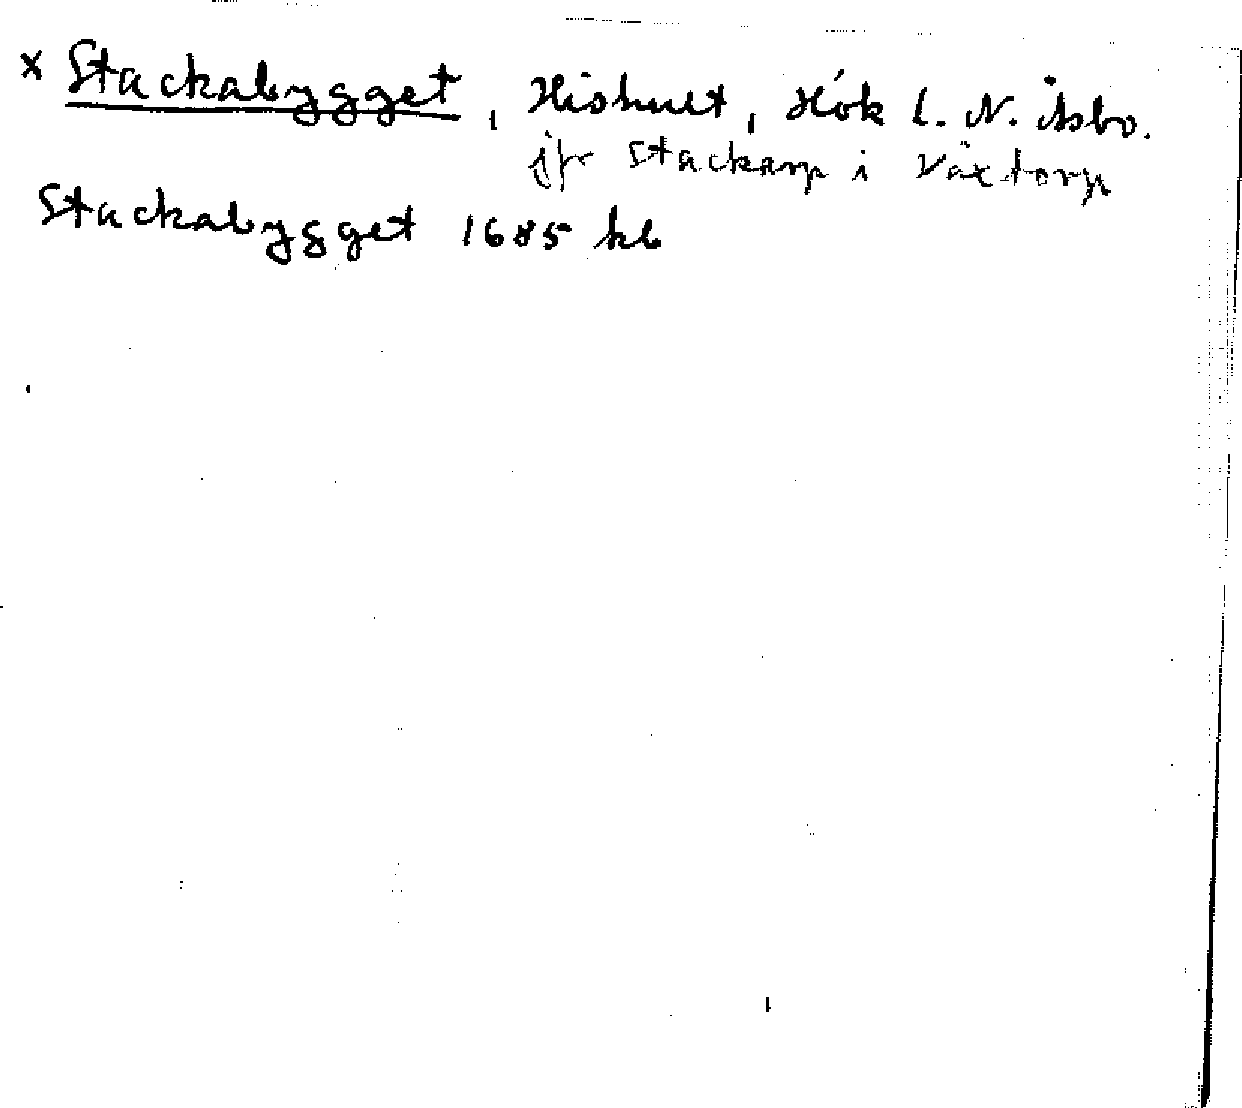 x Stackabygget, Hishult, Hök l. N. Åsbo.
jfr Stackarp i Växtorp
Stackabygget 1685 kb